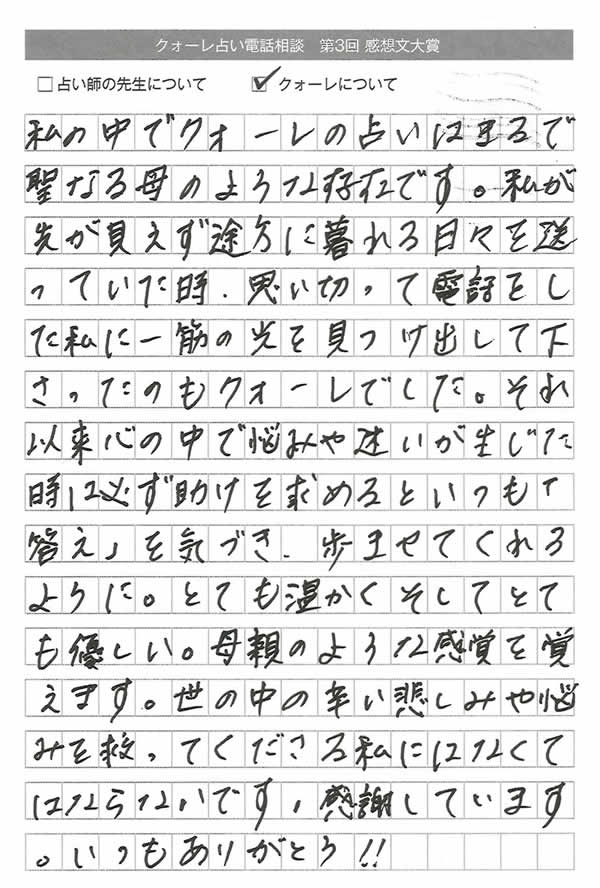 クォーレ占い電話相談　第3回 感想文大賞
□占い師の先生について　☑クォーレについて
私の中でクォーレの占いはまるで
聖なる母のような存在です。私が
先が見えず途方に暮れる日々を送
っていた時、思い切って電話をし
た私に一筋の光を見つけ出して下
さったのもクォーレでした。それ
以来心の中で悩みや迷いが生じた
時には必ず助けを求めるといつも「
答え」を気づき、歩ませてくれる
ように。とても温かくそしてとて
も優しい。母親のような感覚を覚
えます。世の中の辛い悲しみや悩
みを救ってくださる私にはなくて
はならないです。感謝しています
。いつもありがとう!!